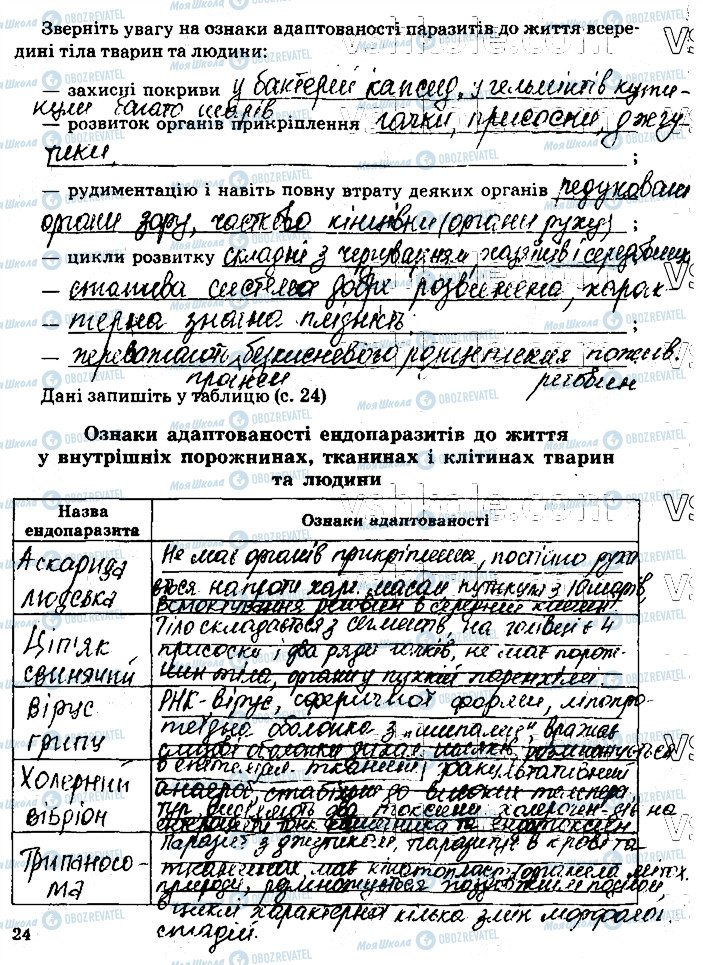 Зверніть увагу на ознаки адаптованості паразитів до життя всере-
дині тіла тварин та людини:
— захисні покриви у бактерій капсид, у гельмінтів кути-
кули багато шарів
— розвиток органів прикріплення гачки, присоски, джгу
тики. ;
— рудиментацію і навіть повну втрату деяких органів редуковані
органи зору, частково кінцівки (органи руху) ;
— цикли розвитку складні з чергуванням хазяїнів і середовищ
— статева система добре розвинена, харак
— терна значна плідність. ;
— переважають безкисневого розщеплення пожив.
речовин
Дані запишіть у таблицю (с. 24)
Ознаки адаптованості ендопаразитів до життя
у внутрішніх порожнинах, тканинах і клітинах тварин
та людини
Назва
ендопаразита
Ознаки адаптованості
Аскарида
людська
Не має органів прикріплення, постійно руха
ється напроти хар. масам кутикули з 10 шарів,
всмоктування речовин в середній
Ціп'як
свинячий
Тіло складається з сегментів на голівці є 4
присоски і два ряди гачків, не має порож-
нин тіла, органи у пухкій паренхімі
Вірус
грипу
РНК-вірус, сферичної форми, ліпопро-
теїдна оболонка з "шипами", вражає
слизові оболонки дихал. шляхів, розмножується
в епітеліал. тканині
Холерний
вібріон
факультативний
анаероб, стабільно до високих темпера
тур виділяють два токсини холероген діє на
та ендотоксин
Трипаносо-
ма
Паразит з джгутиком, паразитує в крові та
тканинах, має кінетопласт (органела мітох.
природи, розмножується поздовжнім поділом,
в циклі характерна кілька змін морфолог.
стадій.
24
vshkole.com
Моя Школа
OBOZREVATEL